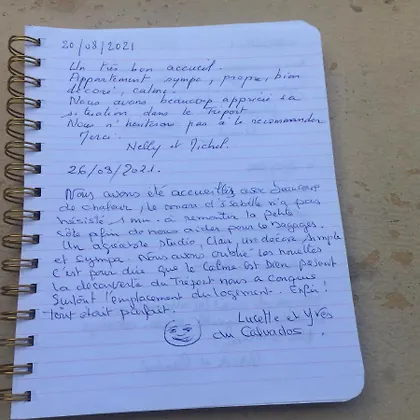 20/08/2021
Un très bon accueil.
Appartement sympa, propre, bien
décoré, calme.
Nous avons beaucoup apprécié sa
situation dans le Tréport
Nous n'hésiterons pas à le recommander
Merci.
Nelly et Michel.
26/08/2021.
Nous avons été accueillis avec beaucoup
de chaleur, le mari d'Isabelle n'a pas
hésité 1 mn. à remonter la petite
côte afin de nous aider pour les bagages.
Un agréable studio, clair, un décor simple
et sympa. Nous avons oublié les
C'est pour dire que le calme est bien présent
la découverte du Tréport nous a conquis
Surtout l'emplacement du logement. Enfin!
tout était parfait.
Lucette et Yves
du Calvados.